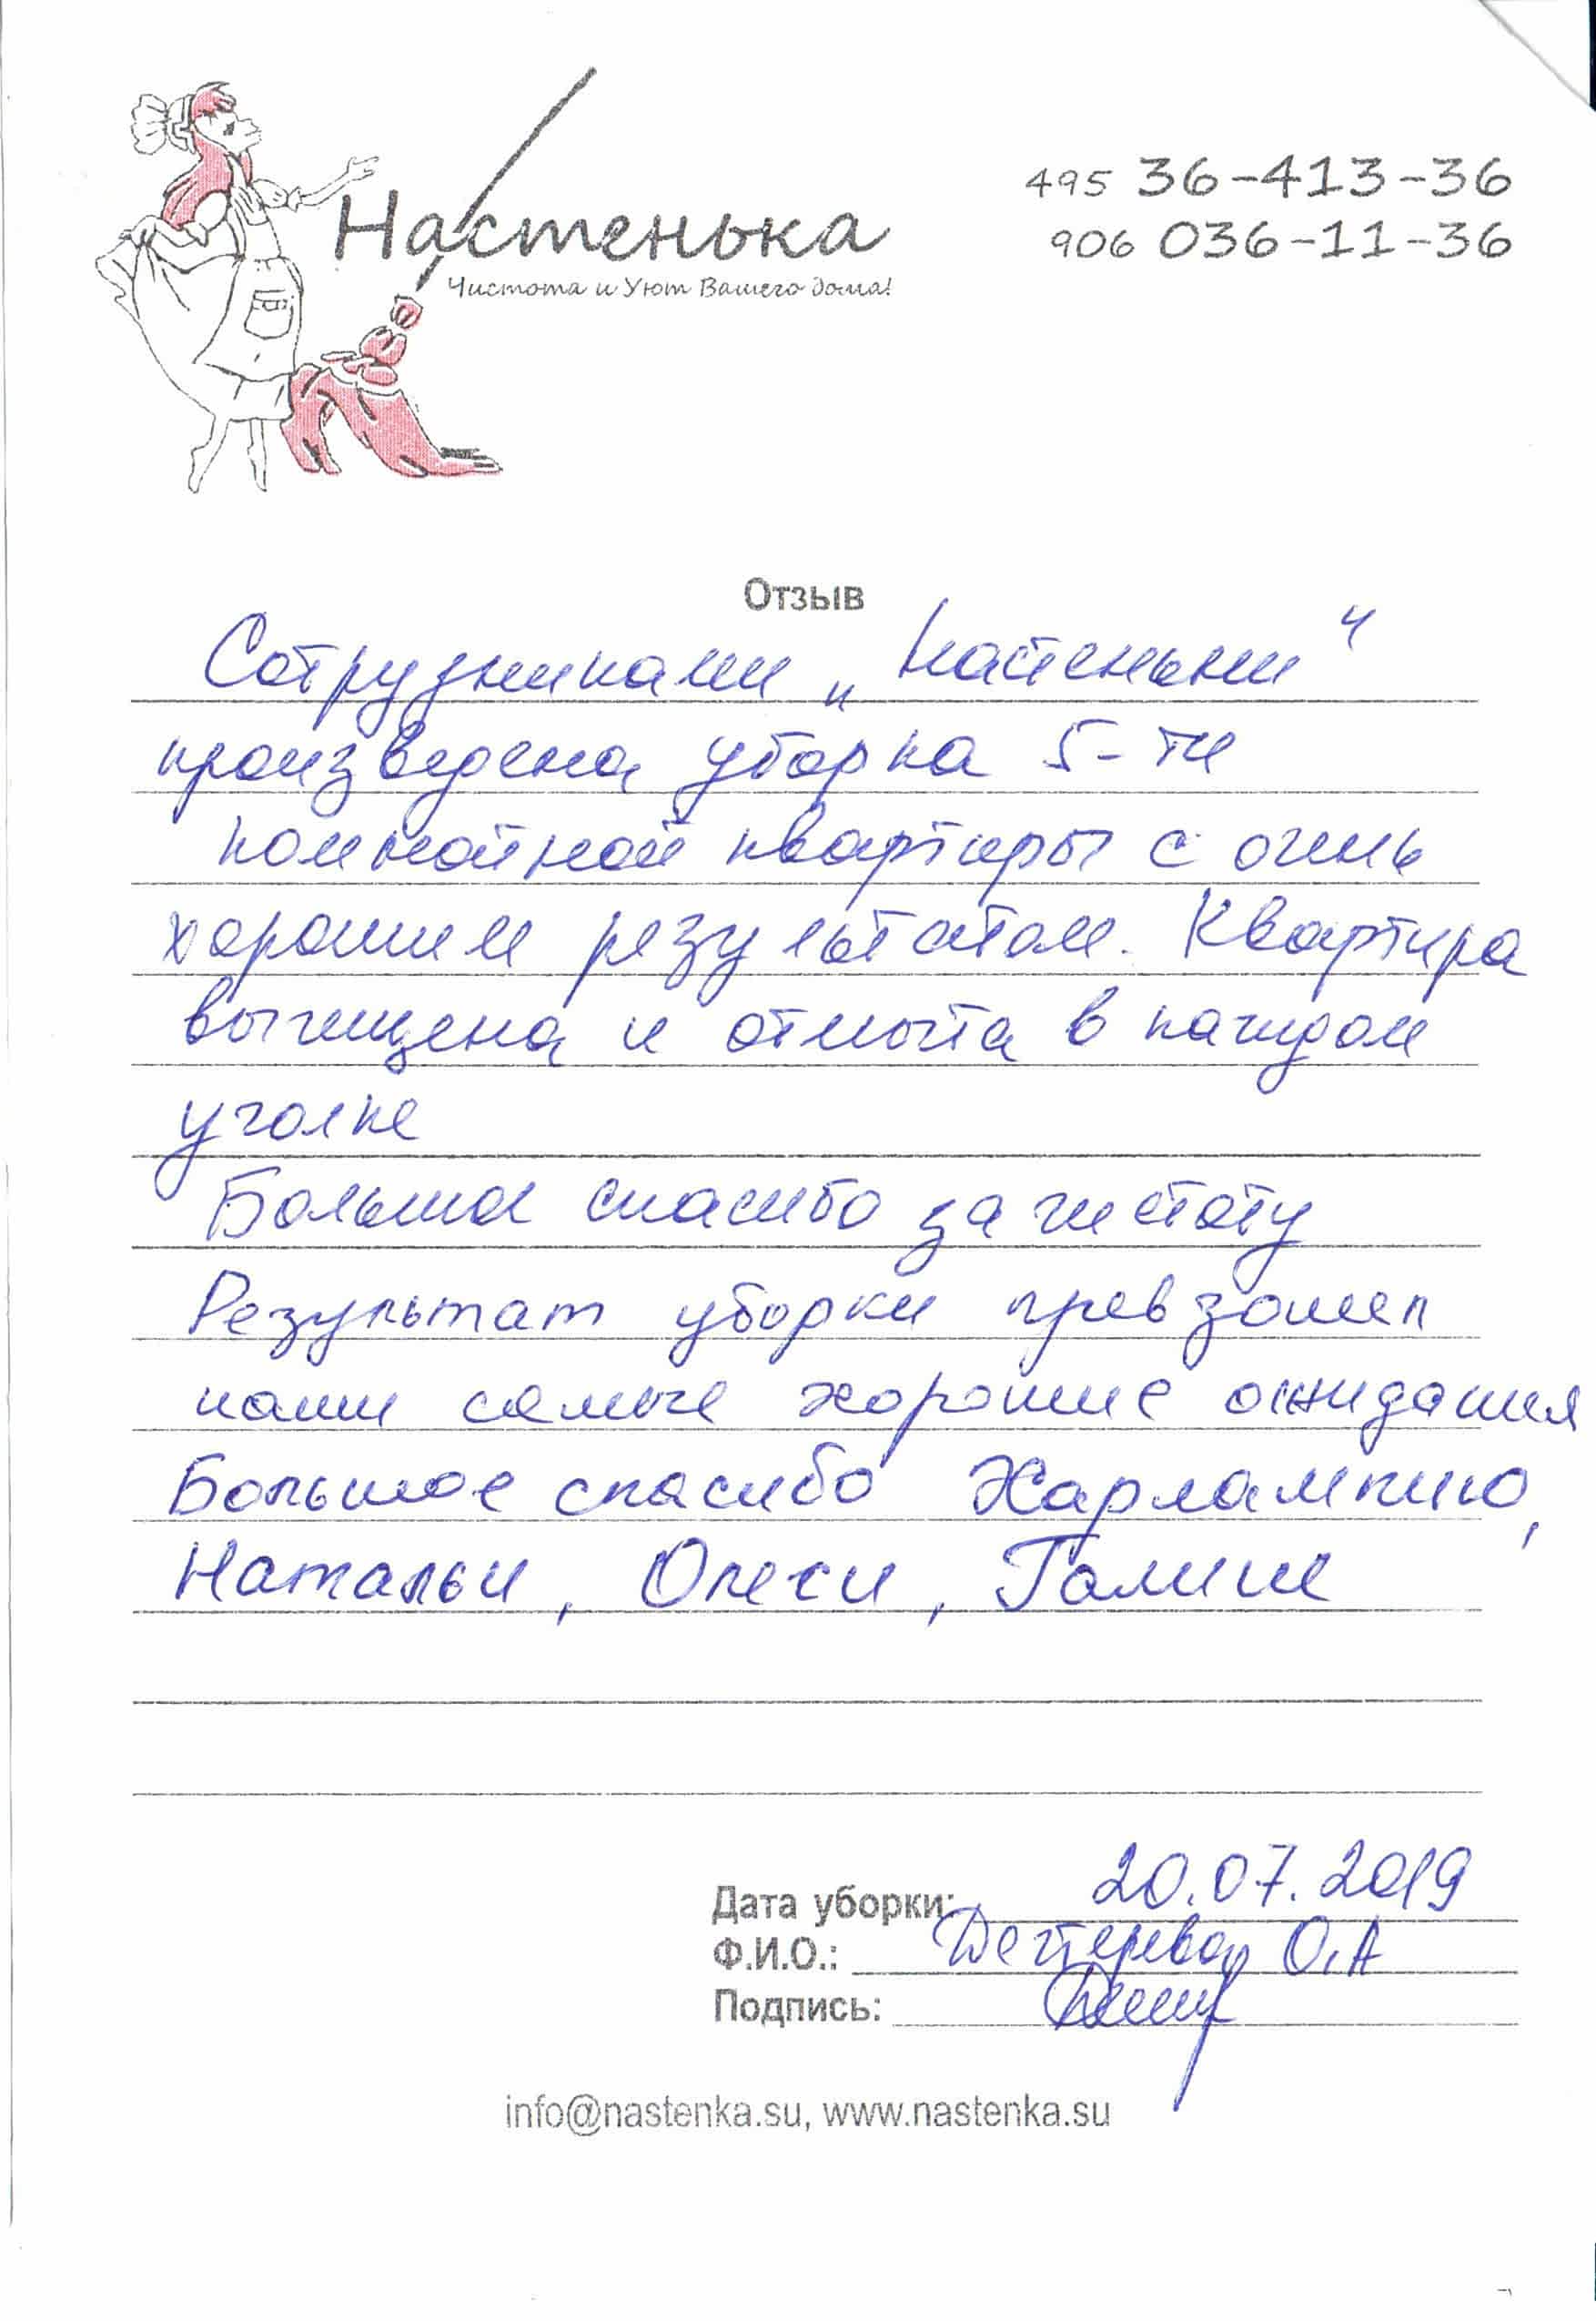 495 36-413-36
906 036-11-36
Настенька
Чистота и Уют Вашего дома!
Отзыв
Сотрудниками „Настеньки“
произведена уборка 5-ти
комнатной квартиры с очень
хорошим результатом. Квартира
вычищена и отмыта в каждом
уголке
Большое спасибо за чистоту
Результат уборки превзошел
наши самые хорошие ожидания
Большое спасибо Харлампию,
Натальи, Олеси, Галине
Дата уборки: 20.07.2019
Ф.И.О.: О.А
Подпись:
info@nastenka.su, www.nastenka.su